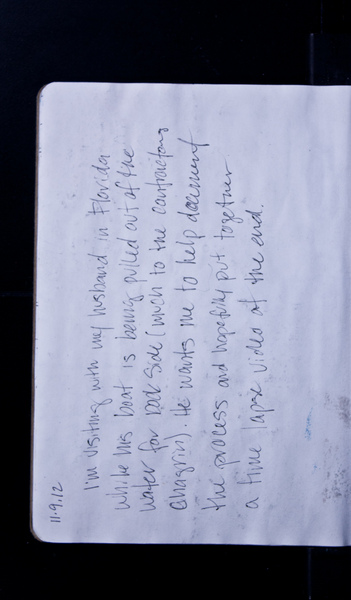 11.9.12
I'm visiting with my husband in Florida
while his boat is being pulled out of the
water for
(much to the contractors
chagrin). He wants me to help document
the process and hopefully put together
a time lapse video at the end.